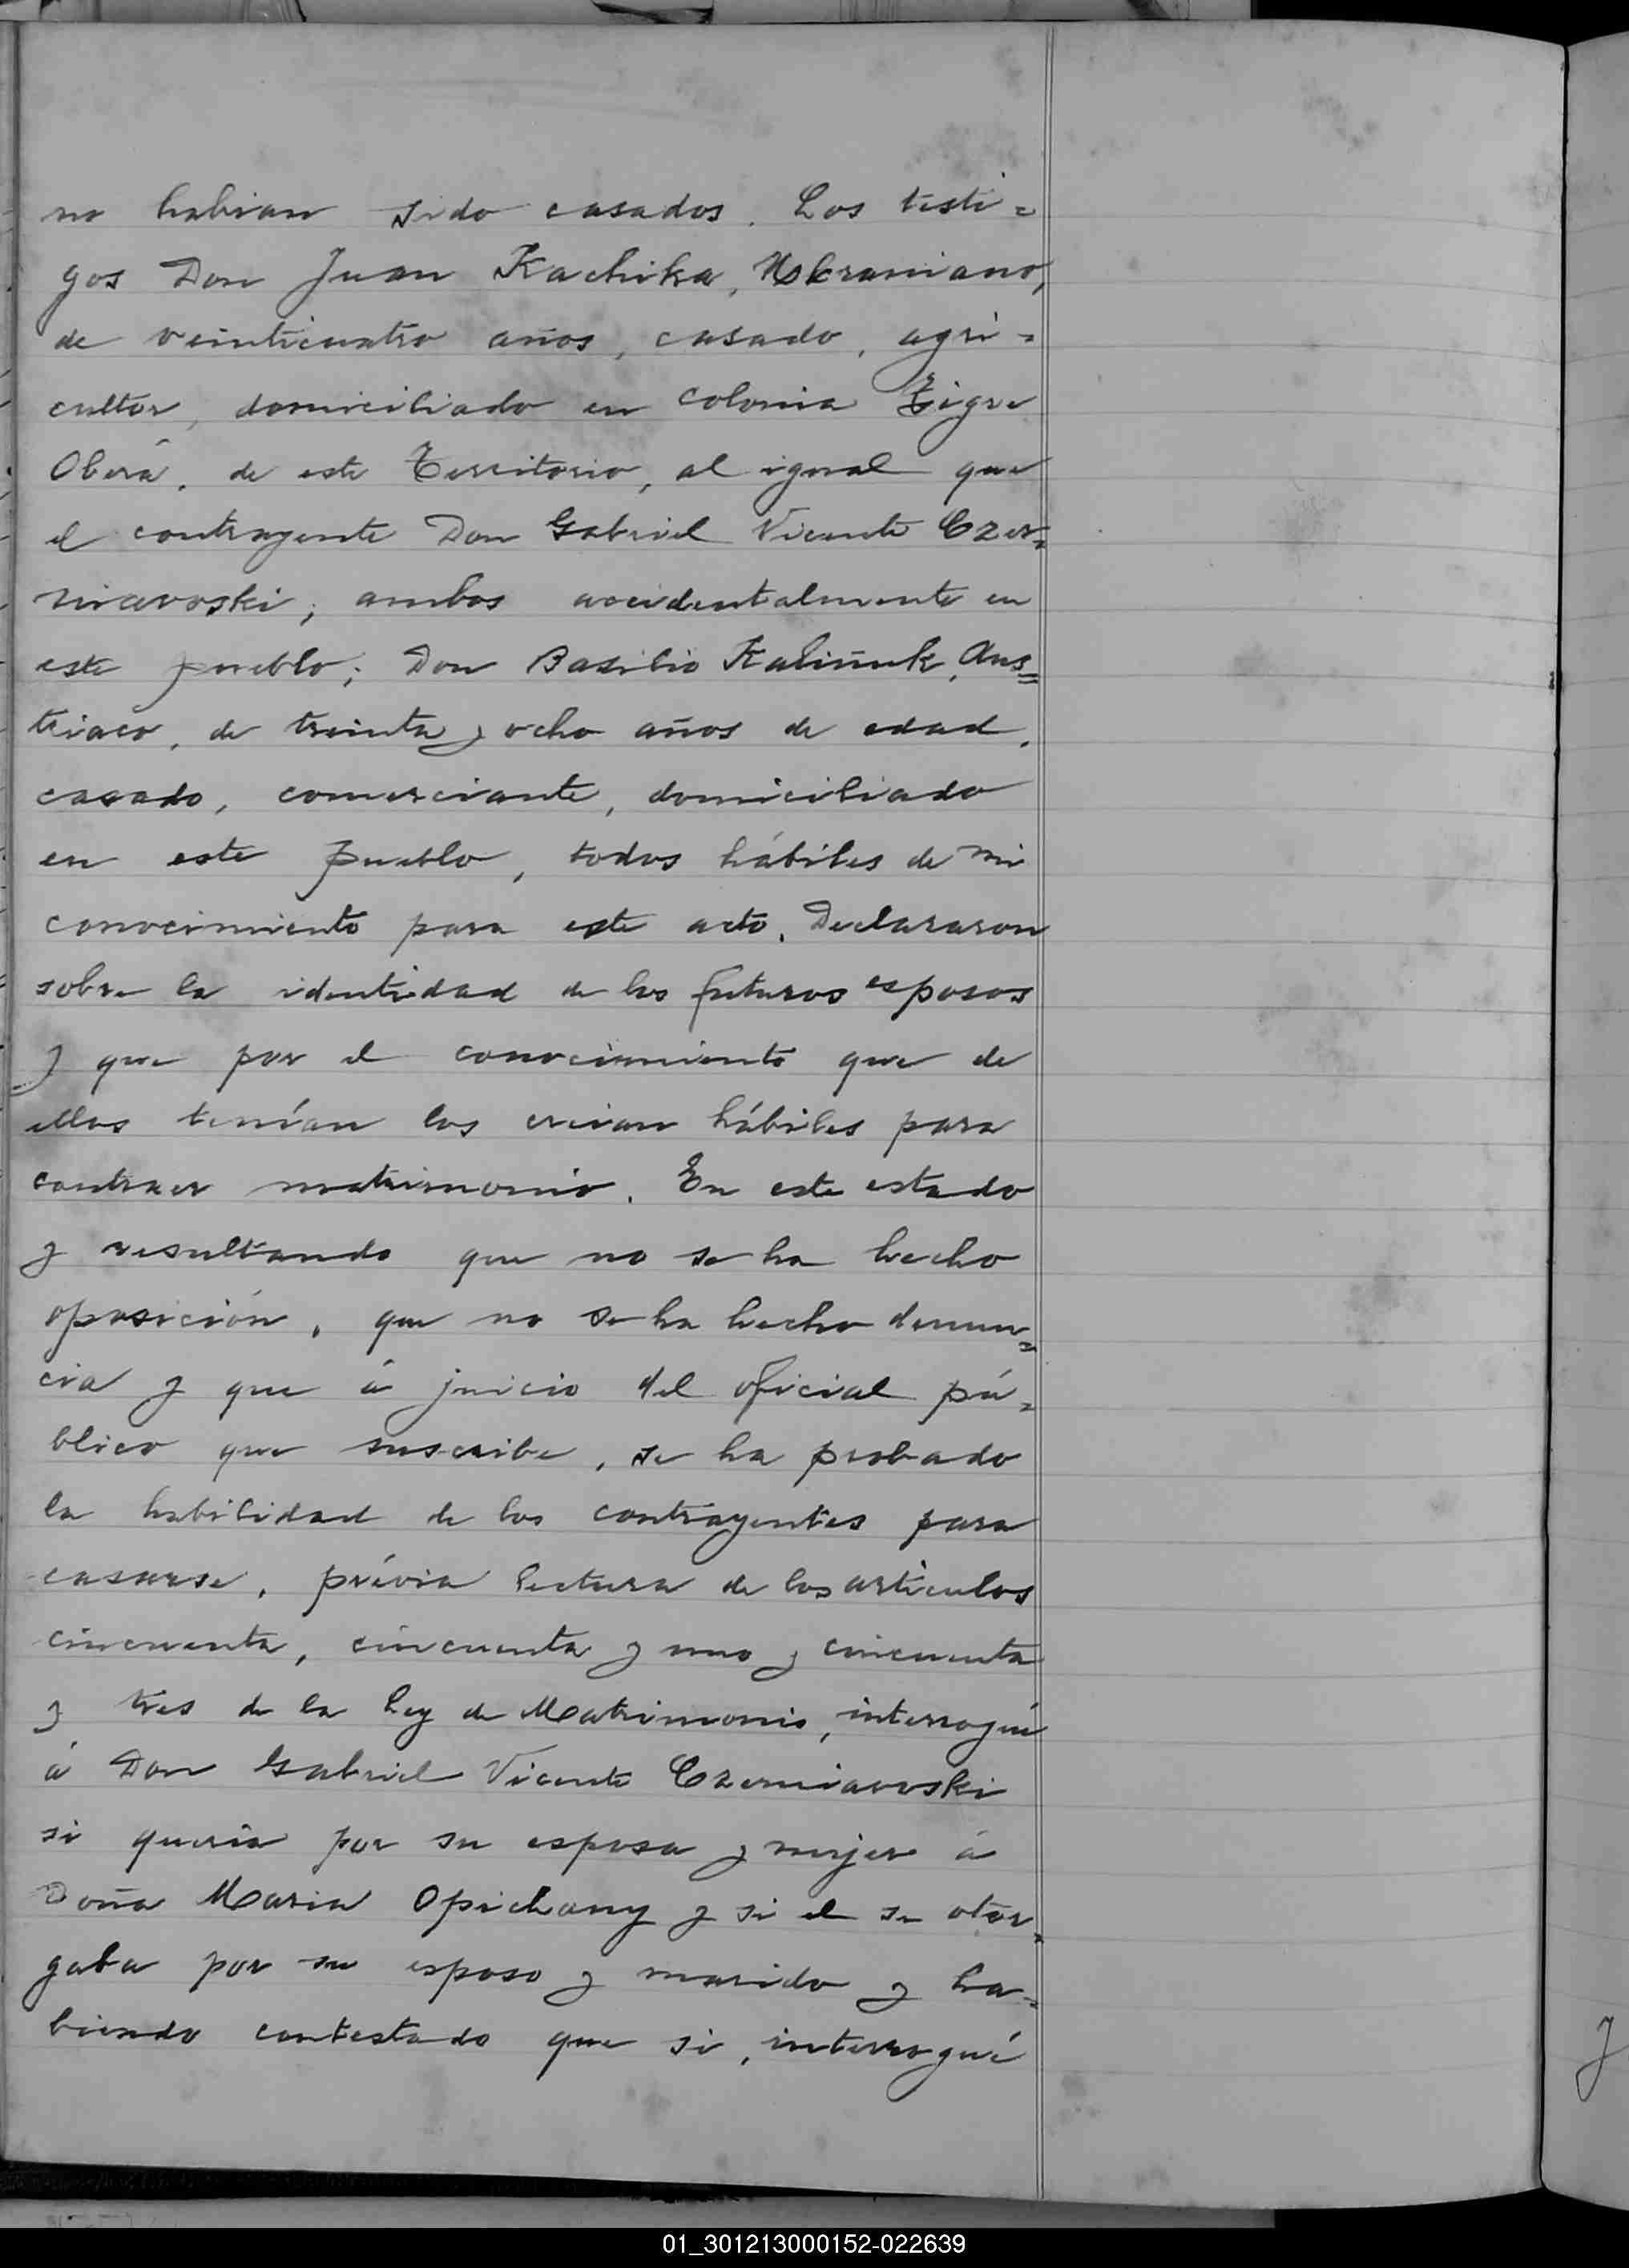 no habian sido casados. Los testi=
gos Don Juan Kachika, Ukraniano,
de veinticuatro años, casado, agri=
cultor, domiciliado en colonia Tigre
Oberá, de este Territorio, al igual que
el contrayente Don Gabriel Vicente Czer=
niavoski; ambos accidentalmente en
este pueblo; Don Basilio Kaliñuk, Aus=
triaco, de treinta y ocho años de edad,
casado, comerciante, domiciliado
en este pueblo, todos hábiles de mi
conocimiento para este acto. Declararon
sobre la identidad de los futuros esposos
y que por el conocimiento que de
ellos tenían los creian hábiles para
contraer matrimonio. En este estado
y resultando que no se ha hecho
oposición, que no se ha hecho denun=
cia y que á juicio del oficial pú=
blico que suscribe, se ha probado
la habilidad de los contrayentes para
casarse, prévia lectura de los articulos
cincuenta, cincuenta y uno y cincuenta
y tres de la Ley de Matrimonio, interrogué
á Don Gabriel Vicente Czerniavoski
si queria por su esposa y mujer á
Doña Maria Opichany y si el se otor=
gaba por su esposo y marido y ha=
biendo contestado que si, interrogué
y
01_301213000152-022639